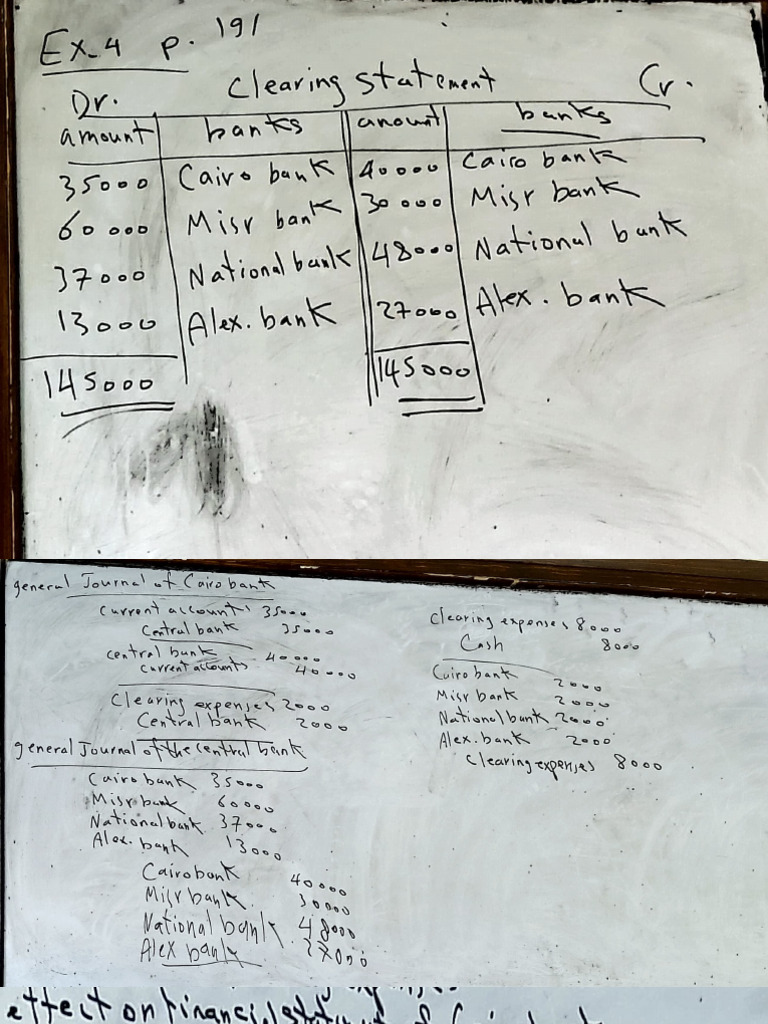 Ex_4 p. 191
Clearing statement
Dr. Cr.
amount banks amount banks
35000 Cairo bank 40000 Cairo bank
60000 Misr bank 30000 Misr bank
37000 National bank 48000 National bank
13000 Alex. bank 27000 Alex. bank
145000 145000
general Journal of Cairo bank
Current accounts 35000
Central bank 35000
Central bank 40000
Current accounts 40000
Clearing expenses 2000
Central bank 2000
general Journal of the central bank
Cairo bank 35000
Misr bank 60000
National bank 37000
Alex. bank 13000
Cairo bank 40000
Misr bank 30000
National bank 48000
Alex bank 27000
Clearing expenses 8000
Cash 8000
Cairo bank 2000
Misr bank 2000
National bank 2000
Alex. bank 2000
Clearing expenses 8000
effect on